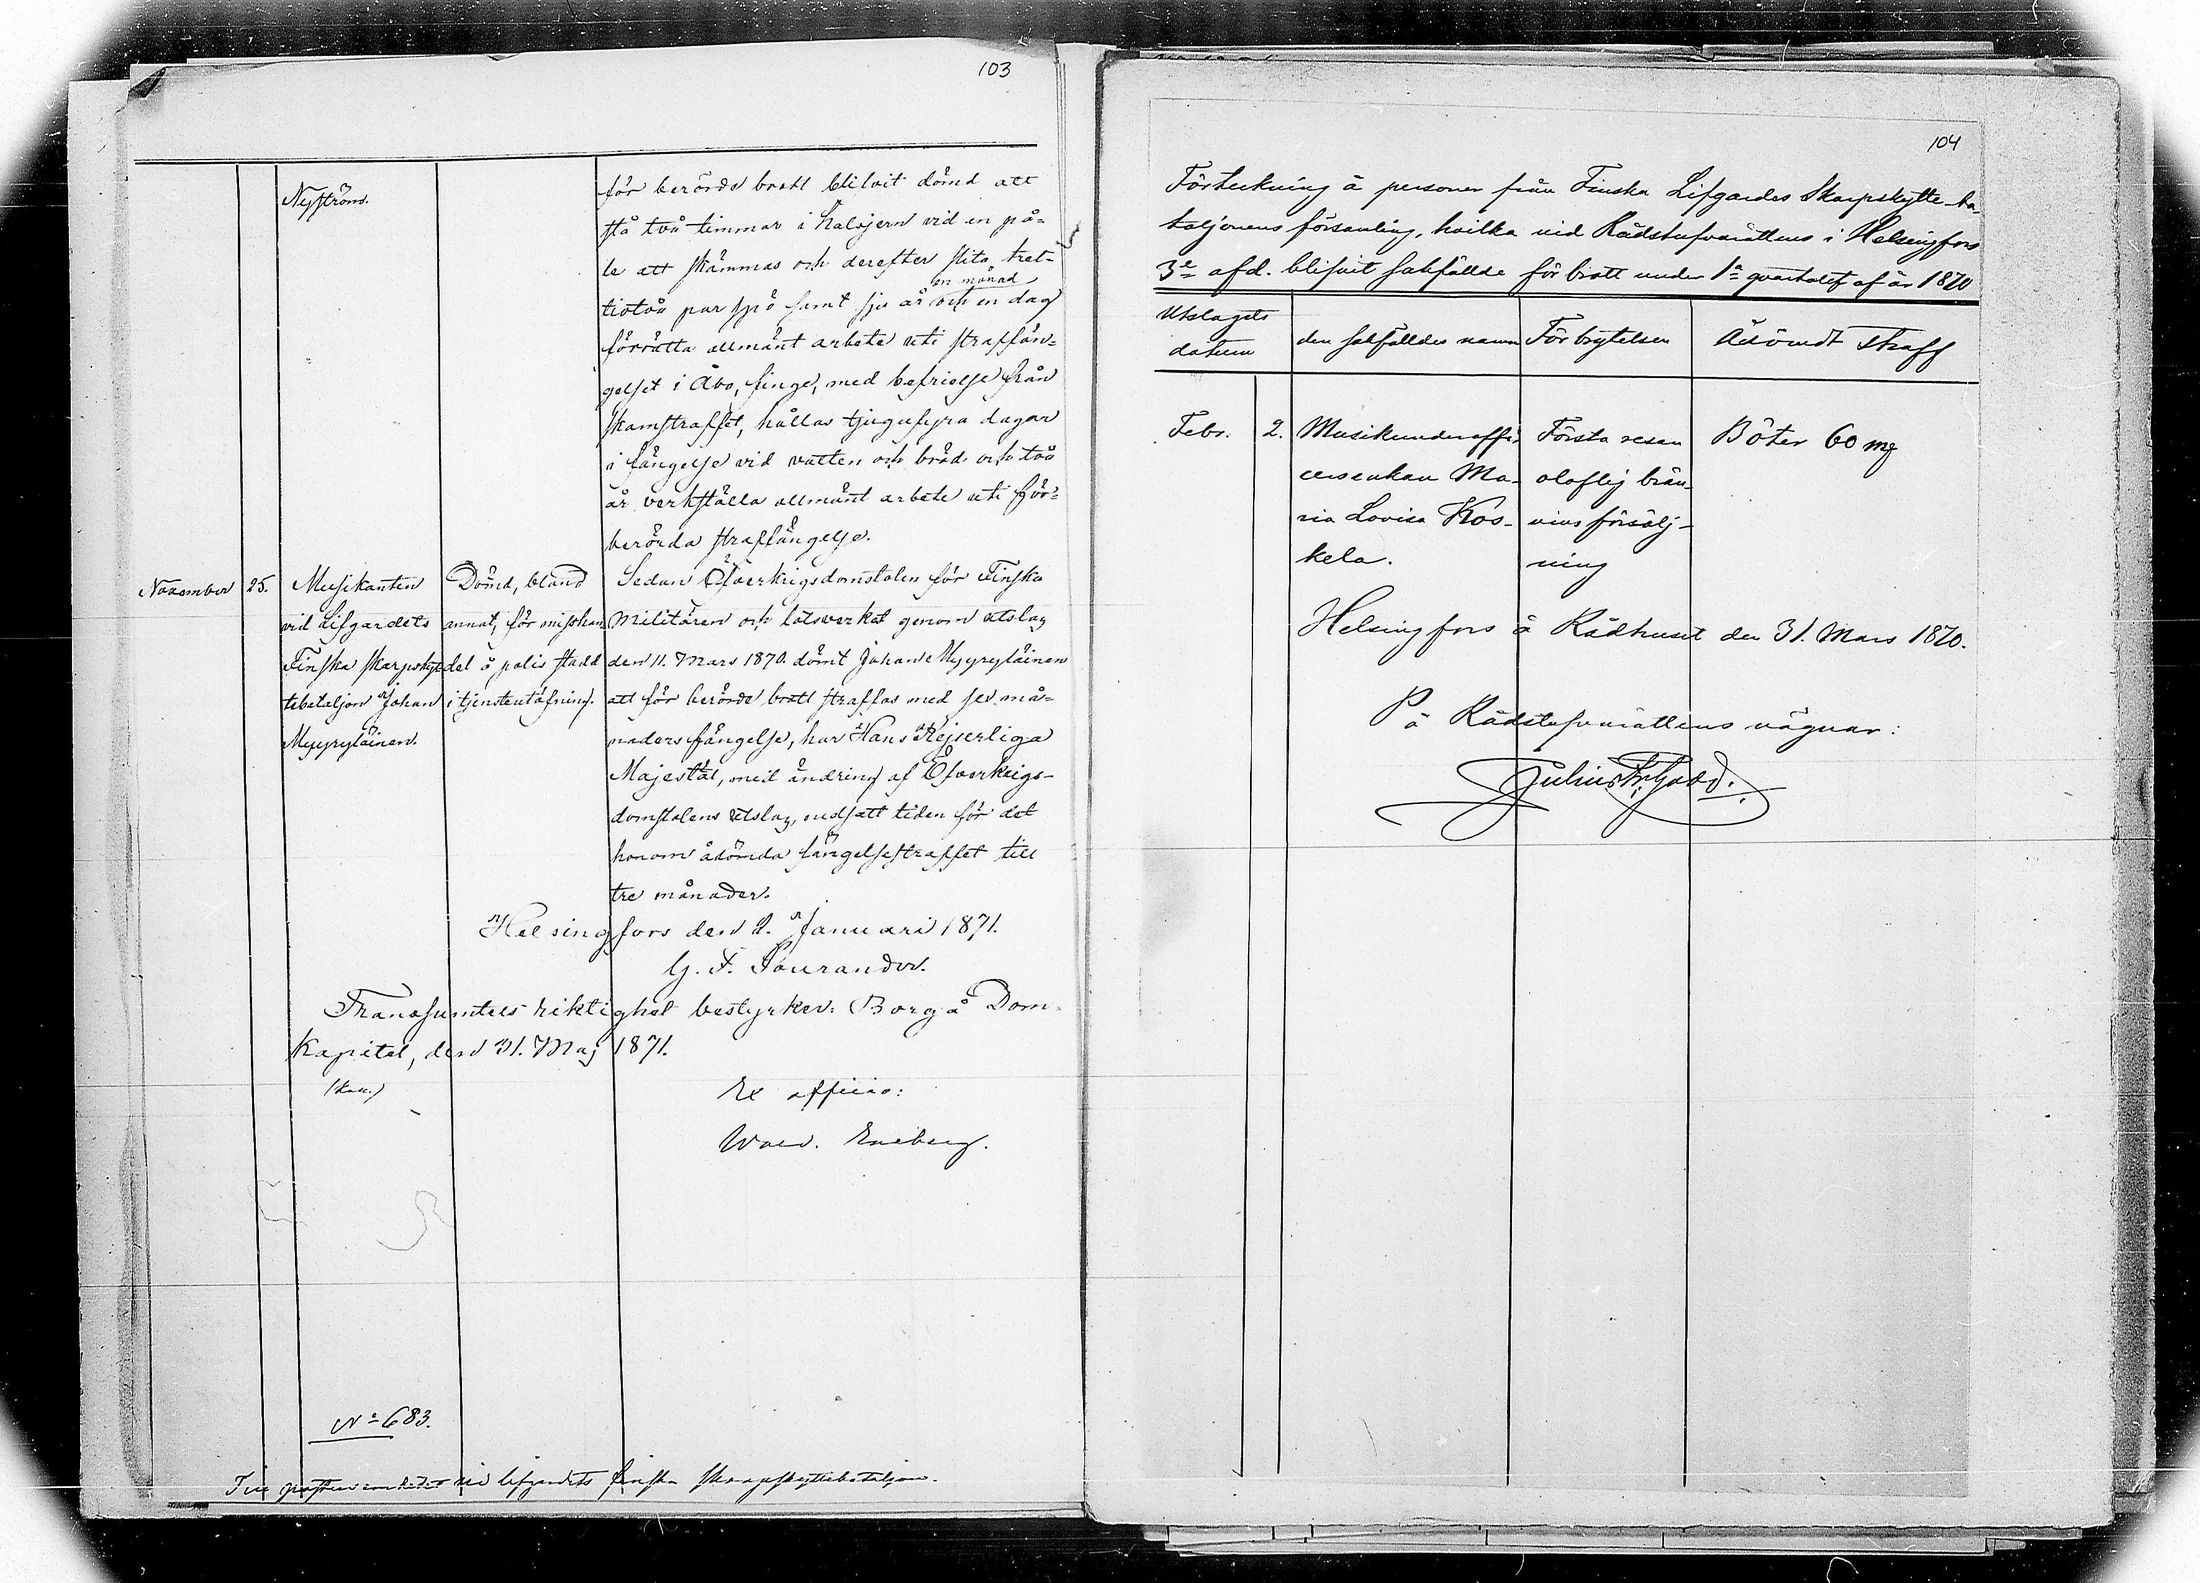 103
Nyström.
för berörde brott blifvit dömd att
stå två timmar i halsjern vid en på-
le att skämmas och derefter slita tret-
en månad
tiotvå par spö samt sju år och en dag
förrätta allmänt arbete uti straffän-
gelset i Åbo, finge, med befrielse från
skamstraffet, hållas tjugufyra dagar
i fängelse vid vatten och bröd och två
år verkställa allmänt arbete uti för-
berörda straffängelse.
November 25. Musikanten
vid Lifgardets
Finska skarpskyt-
tebataljon Johan
Myyryläinen.
Dömd, bland
annat, för misshan-
del å polis stadd
i tjensteutöfning.
Sedan Öfverkrigsdomstolen för Finska
Militären och lotsverket genom utslag
den 11. Mars 1870. dömt Johan Myyryläinen
att för berörde brott straffas med sex må-
naders fängelse, har Hans Kejserliga
Majestät, med ändring af Öfverkrigs-
domstolens utslag, nedsatt tiden för det
honom ådömda fängelsestraffet till
tre månader.
Helsingfors den 2. Januari 1871.
G. F. Sourander.
Transumtets riktighet bestyrker: Borgå Dom-
kapitel, den 31. Maj 1871.
Ex officio:
Wald. Eneberg.
No 683.
Till pastorsembetet vid lifgardets finska skarpskyttebataljon.
104
Förteckning å personer från Finska Lifgardes Skarpskytte-ba-
taljonens församling, hvilka vid Rådstufvurättens i Helsingfors
3e afd. blifvit sakfällde för brott under 1a qvartalet af år 1870
Utslagets
datum
den sakfälldes namn
Förbrytelsen
Ådömdt straff
Febr. 2. Musikunderoffi-
cersenkan Ma-
ria Lovisa Kos-
kela.
Första resan
oloflig brän-
vins försälj-
ning
Böter 60 mk
Helsingfors å Rådhuset den 31. Mars 1870.
På Rådstufvurättens vägnar:
Julius Fr. Gadd.